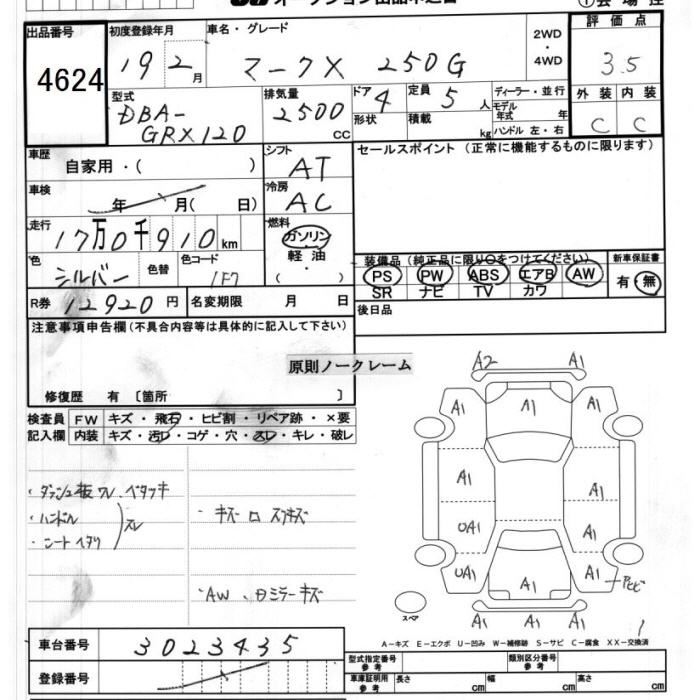 オークション出品申込書
①会場控
出品番号
4624
初度登録年月
19 2月
車名・グレード
マークX 250G
2WD
・
4WD
評価点
3.5
外装 内装
C C
型式
DBA-
GRX120
排気量
2500
CC
ドア 4
形状
定員 5 人
積載 kg
ディーラー・並行
モデル
年式 年
ハンドル 左・右
車歴
自家用・( )
車検
年 月( 日)
走行
17万0千910km
色
シルバー
色替
色コード
1F7
シフト
AT
冷房
AC
燃料
ガソリン
軽油
・
( )
セールスポイント(正常に機能するものに限ります)
装備品(純正品に限り○をつけてください)
PS PW ABS エアB AW
SR ナビ TV カワ
新車保証書
有・無
R券 12920円
名変期限 月 日
後日品
注意事項申告欄(不具合内容等は具体的に記入して下さい)
原則ノークレーム
修復歴 有〔箇所 〕
検査員
記入欄
FW キズ・飛石・ヒビ割・リペア跡・×要
内装 キズ・汚レ・コゲ・穴・スレ・キレ・破レ
・ダッシュ板ワレ、ベタツキ
・ハンドル
・シートヘタリ
スレ
・AW、ドミラーキズ
A2 A1
A1 A1 A1
A1 A1
UA1 A1
UA1 A1 A1
アヒビ
A1 A1 A1
スペア
A-キズ E-エクボ U-凹み W-補修跡 S-サビ C-腐食 XX-交換済
車台番号
3023435
登録番号
型式指定番号
参考
類別区分番号
参考
車庫証明用
参考
長さ cm
幅 cm
高さ cm